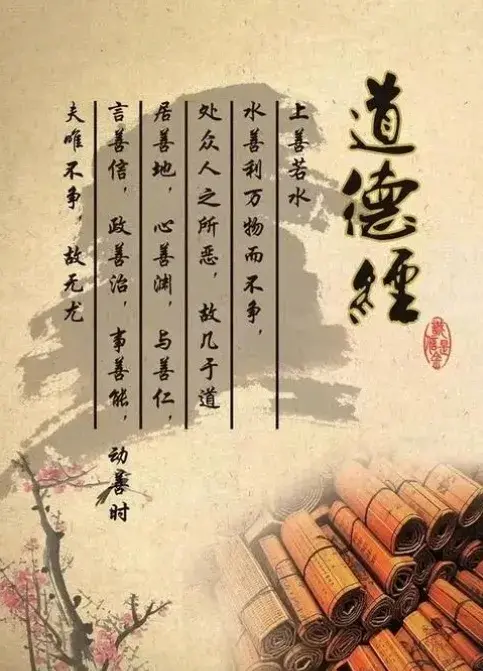 道德經
上善若水
水善利万物而不争，
处众人之所恶，故几于道
居善地，心善渊，与善仁，
言善信，政善治，事善能，动善时
夫唯不争，故无尤